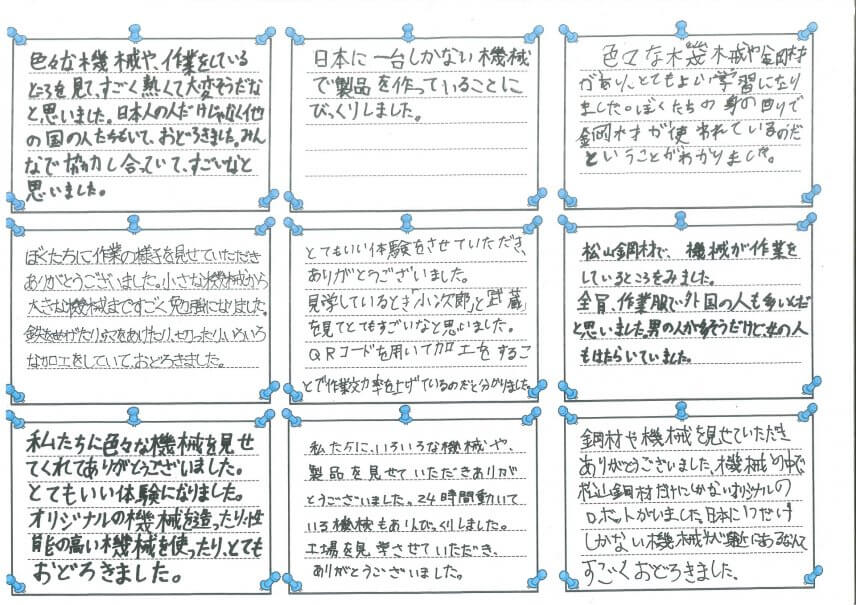 色々な機械や、作業をしている
ところを見て、すごく熱くて大変そうだな
と思いました。日本人の人だけじゃなく他
の国の人たちもいて、おどろきました。みん
なで協力し合っていて、すごいなと
思いました。
日本に一台しかない機械
で製品を作っていることに
びっくりしました。
色々な機械や鋼材
があり、とてもよい学習になり
ました。ぼくたちの身の回りで
鋼材が使われているのだ
ということがわかりました。
ぼくたちに作業の様子を見せていただき
ありがとうございました。小さな機械から
大きな機械まですごく勉強になりました。
鉄をまげたり、穴をあけたり、切ったり、いろいろ
な加工をしていて、おどろきました。
とてもいい体験をさせていただき、
ありがとうございました。
見学しているとき「小次郎」と「武蔵」
を見てとてもすごいなと思いました。
QRコードを用いて加工をするこ
とで作業効率を上げているのだと分かりました。
松山鋼材で、機械が作業を
しているところをみました。
全員、作業服で、外国の人も多いんだ
と思いました。男の人が多そうだけど、女の人
もはたらいていました。
私たちに色々な機械を見せ
てくれてありがとうございました。
とてもいい体験になりました。
オリジナルの機械を造ったり、性
能の高い機械を使ったり、とても
おどろきました。
私たちに、いろいろな機械や、
製品を見せていただきありが
とうございました。24時間動いて
いる機械もありびっくりしました。
工場を見学させていただき、
ありがとうございました。
鋼材や機械を見せていただき
ありがとうございました。機械の中で
松山鋼材だけにしかないオリジナルの
ロボットがいました。日本に1つだけ
しかない機械が近にあるなんて
すごくおどろきました。